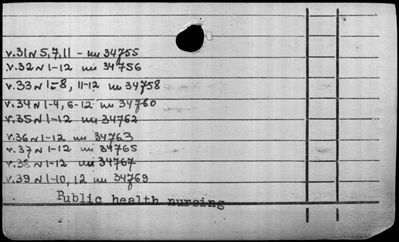 v.31 n 5,7,11 - mu 34755
v.32 n 1-12 mu 34756
v.33 n 1-8, 11-12 mu 34758
v.34 n 1-4, 6-12 mu 34760
v.35 n 1-12 mu 34762
v.36 n 1-12 mu 34763
v.37 n 1-12 mu 34765
v.38 n 1-12 mu 34767
v.39 n 1-10, 12 mu 34769
Public health nursing